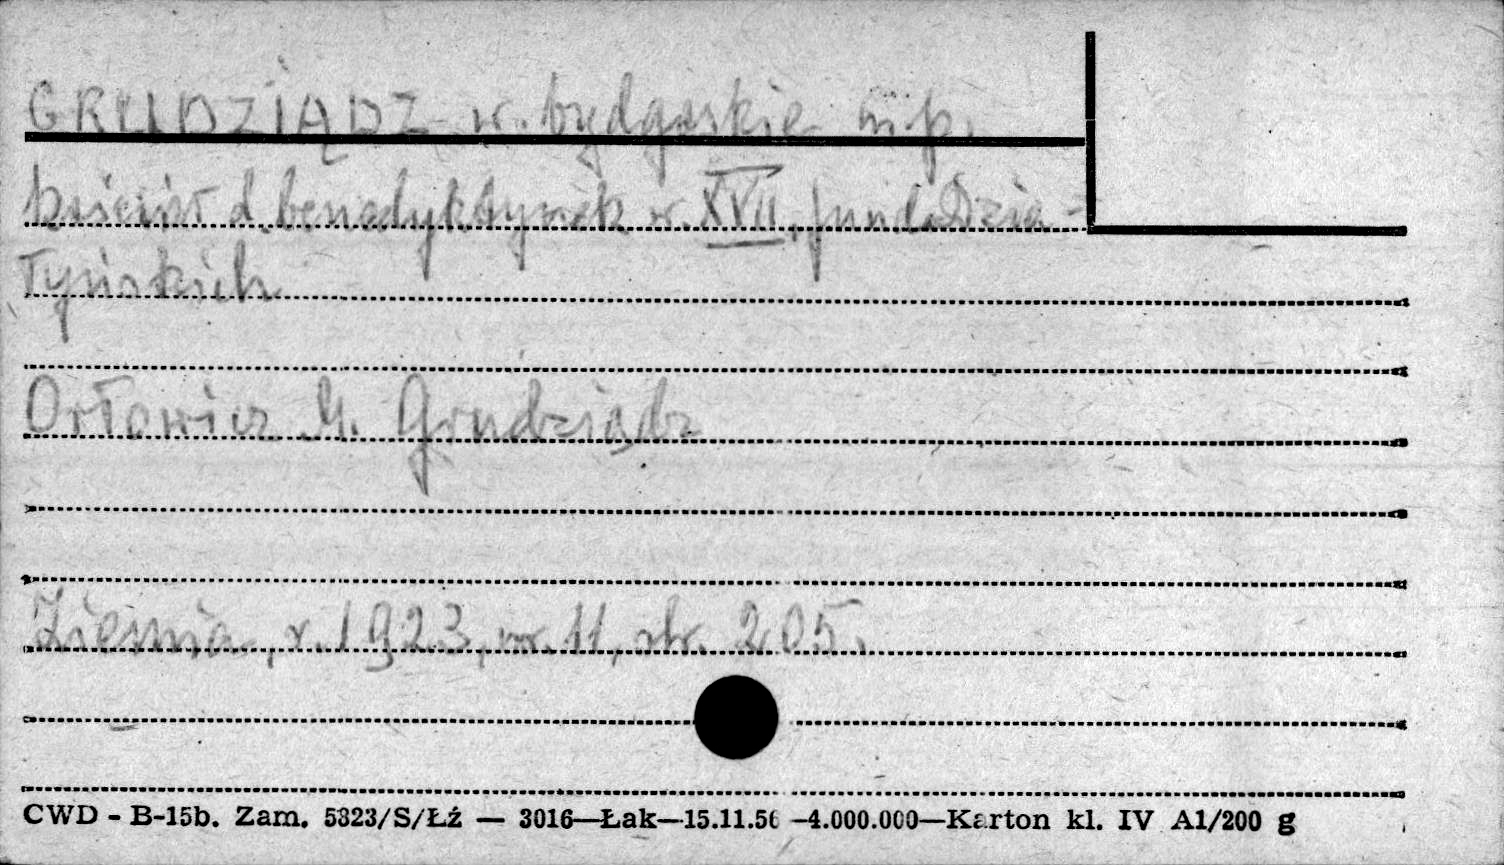 GRUDZIĄDZ w. bydgoskie m. p.
kościół d. benedyktynek w. XVII, fund. Dzia-
łyńskich
Orłowicz M. Grudziądz
Ziemia, r. 1923, nr. 11, str. 205.
CWD - B-15b. Zam. 5823/S/Łź — 3016—Łak—15.11.56 —4.000.000—Karton kl. IV A1/200 g